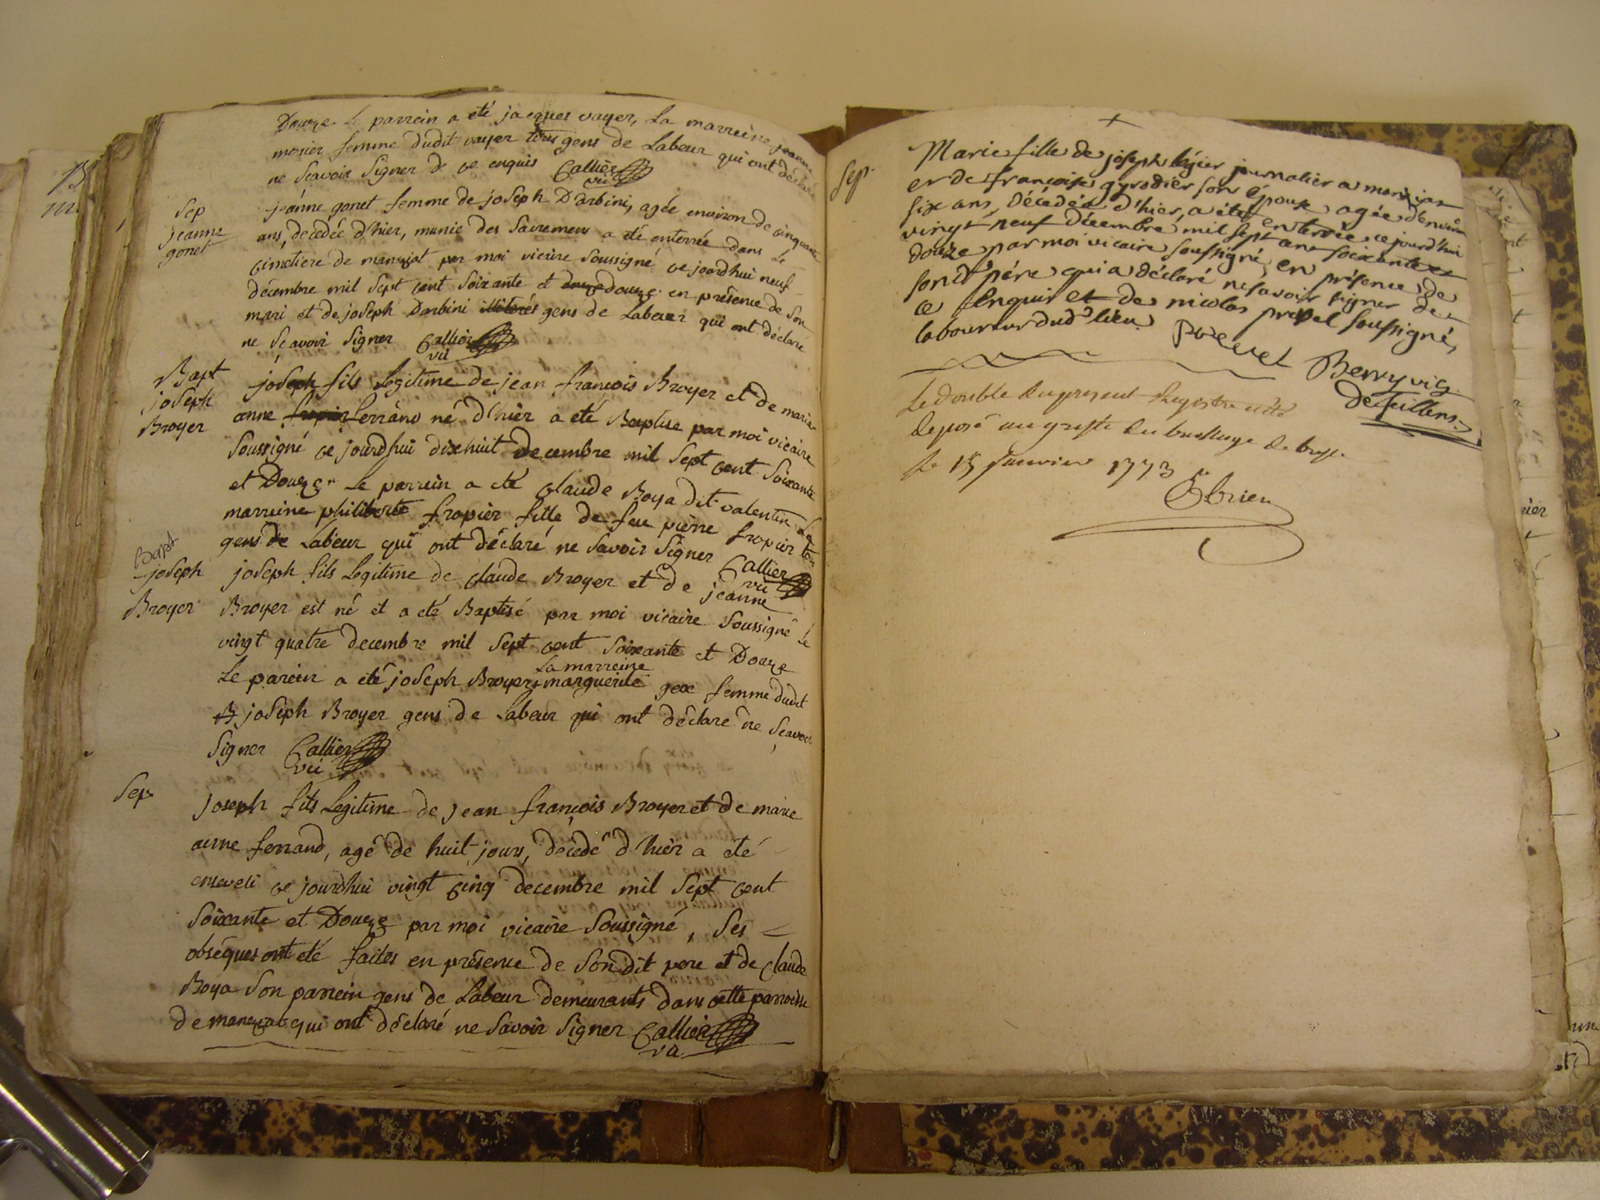 Douze. Le parrein a été jacques vayer, La marreine jeanne
monier femme dudit vayer tous gens de Labeur qui ont déclaré
ne Scavoir Signer de ce enquis Callier
vic
Sep
jeanne
gonet
jeanne gonet femme de joseph Darbini, agée environ de cinquante
ans, decedée d'hier, munie des Sacremens a été enterrée dans Le
cimetiere de manziat par moi vicaire Soussigné ce jourdhui neuf
décembre mil Sept cent Soixante et douze. en présence de Son
mari et de joseph Darbini gens de Labeur qui ont déclaré
ne Scavoir Signer Callier
vic
Bapt
joseph
Broyer
joseph fils Legitime de jean françois Broyer et de marie
anne ferrand né d'hier a été Baptisé par moi vicaire
Soussigné ce jourdhui dixhuit decembre mil Sept cent Soixante
et Douze. Le parrein a été Claude Boya dit valentin La
marreine philiberte fropier fille de feu pierre fropier
gens de Labeur qui ont déclaré ne Savoir Signer Callier
vic
Bapt
joseph
Broyer
joseph fils Legitime de Claude Broyer et de jeanne
Broyer est né et a été Baptisé par moi vicaire Soussigné Le
vingt quatre decembre mil Sept cent Soixante et Douze
Le parein a été joseph Broyer La marreine marguerite gex femme dudit
joseph Broyer gens de Labeur qui ont déclaré ne Scavoir
Signer Callier
vic
Sep.
joseph fils Legitime de jean françois Broyer et de marie
anne ferrand, agé de huit jours, décédé d'hier a été
enseveli ce jourdhui vingt cinq decembre mil Sept cent
Soixante et Douze par moi vicaire Soussigné, Ses
obseques ont été faites en présence de Son dit pere et de Claude
Boya Son parrein gens de Labeur demeurants dans cette parroisse
de manziat qui ont déclaré ne Savoir Signer Callier
vic
Sep.
Marie fille de joseph légier journalier a manziat
et de françoise gyrodier son épouse agée d'environ
six ans, décédée d'hier, a été enterrée ce jourdhui
vingt neuf décembre mil sept cent soixante et
douze par moi vicaire soussigné en présence de
sondt pére qui a déclaré ne savoir signer de
ce enquis et de nicolas prevel soussigné,
laboureur dudt lieu
prevel Berry vic
De feillens
Le double du present Registre a été
deposé au greffe du bailliage de bresse
Le 15 janvier 1773
Obrien